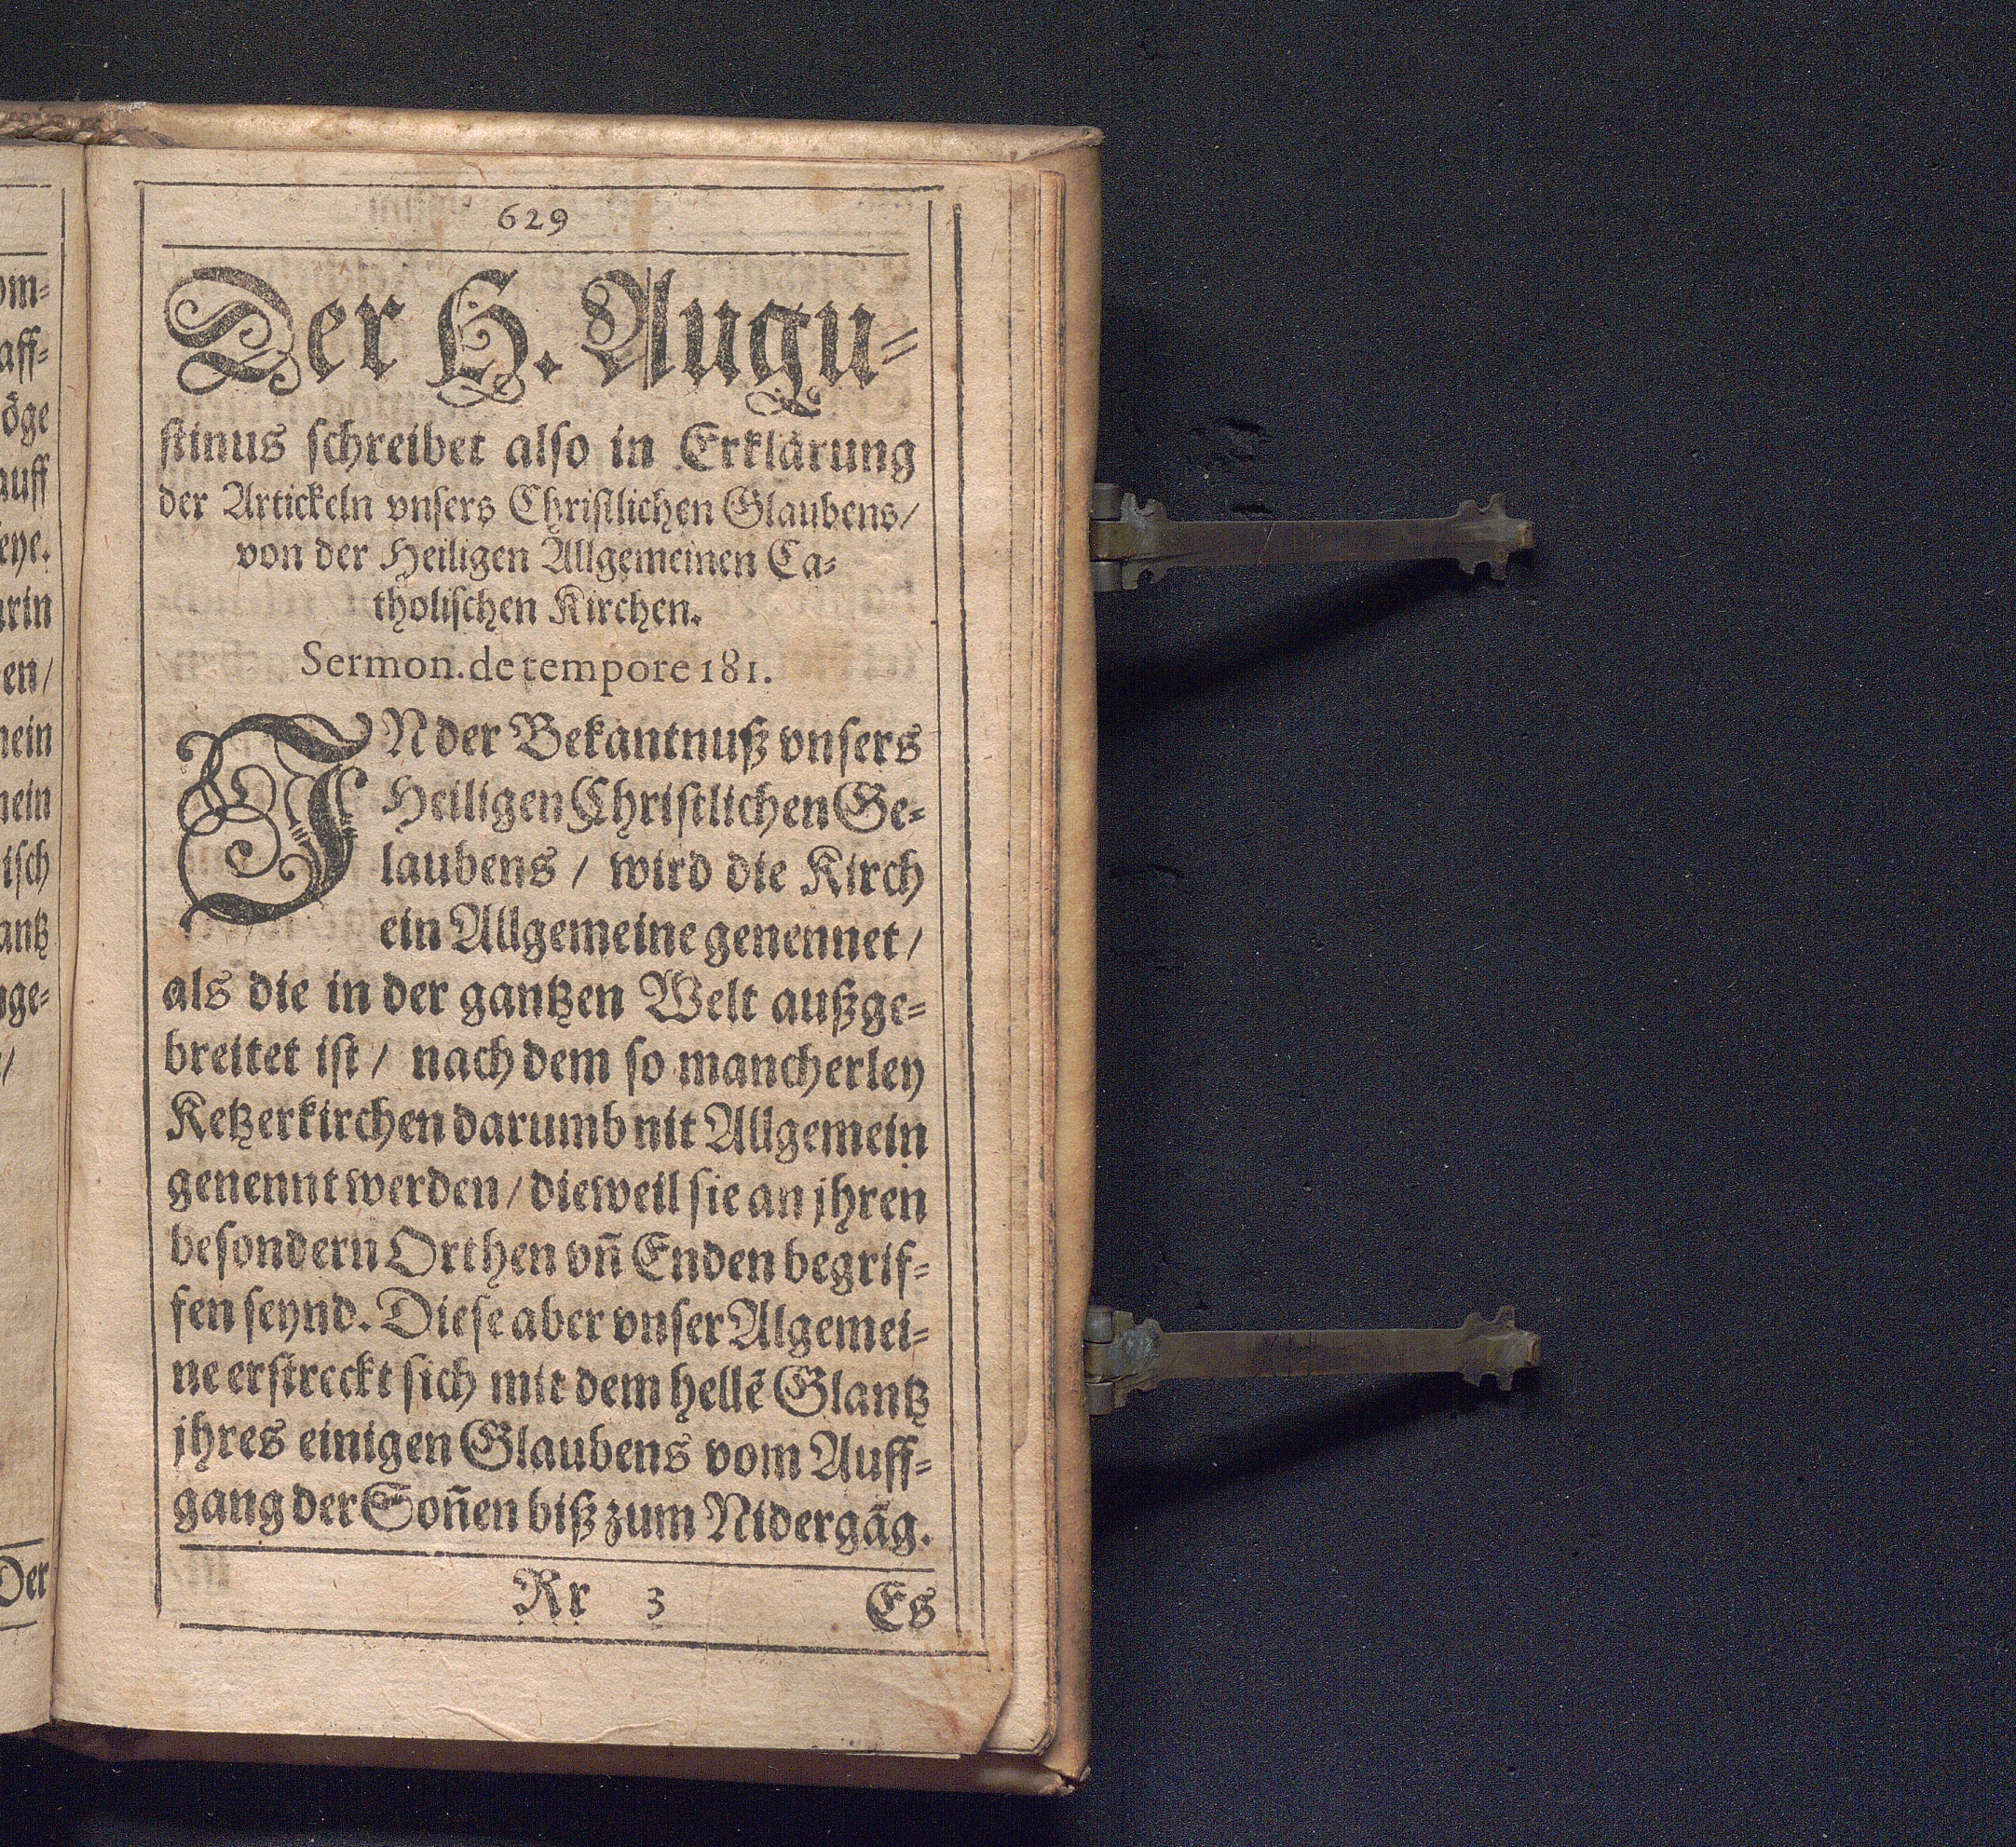 629
Der H. Augu-
stinus schreibet also in Erklärung
der Artickeln vnsers Christlichen Glaubens/
von der Heiligen Allgemeinen Ca-
tholischen Kirchen.
Sermon. de tempore 181.
IN der Bekantnuß vnsers
Heiligen Christlichen Ge-
laubens / wird die Kirch
ein Allgemeine genennet/
als die in der gantzen Welt außge-
breitet ist / nach dem so mancherley
Ketzerkirchen darumb nit Allgemein
genennt werden / dieweil sie an jhren
besondern Orthen vñ Enden begrif-
fen seynd. Diese aber vnser Algemei-
ne erstreckt sich mit dem hellẽ Glantz
jhres einigen Glaubens vom Auff-
gang der Soñen biß zum Nidergãg.
Rr 3 Es